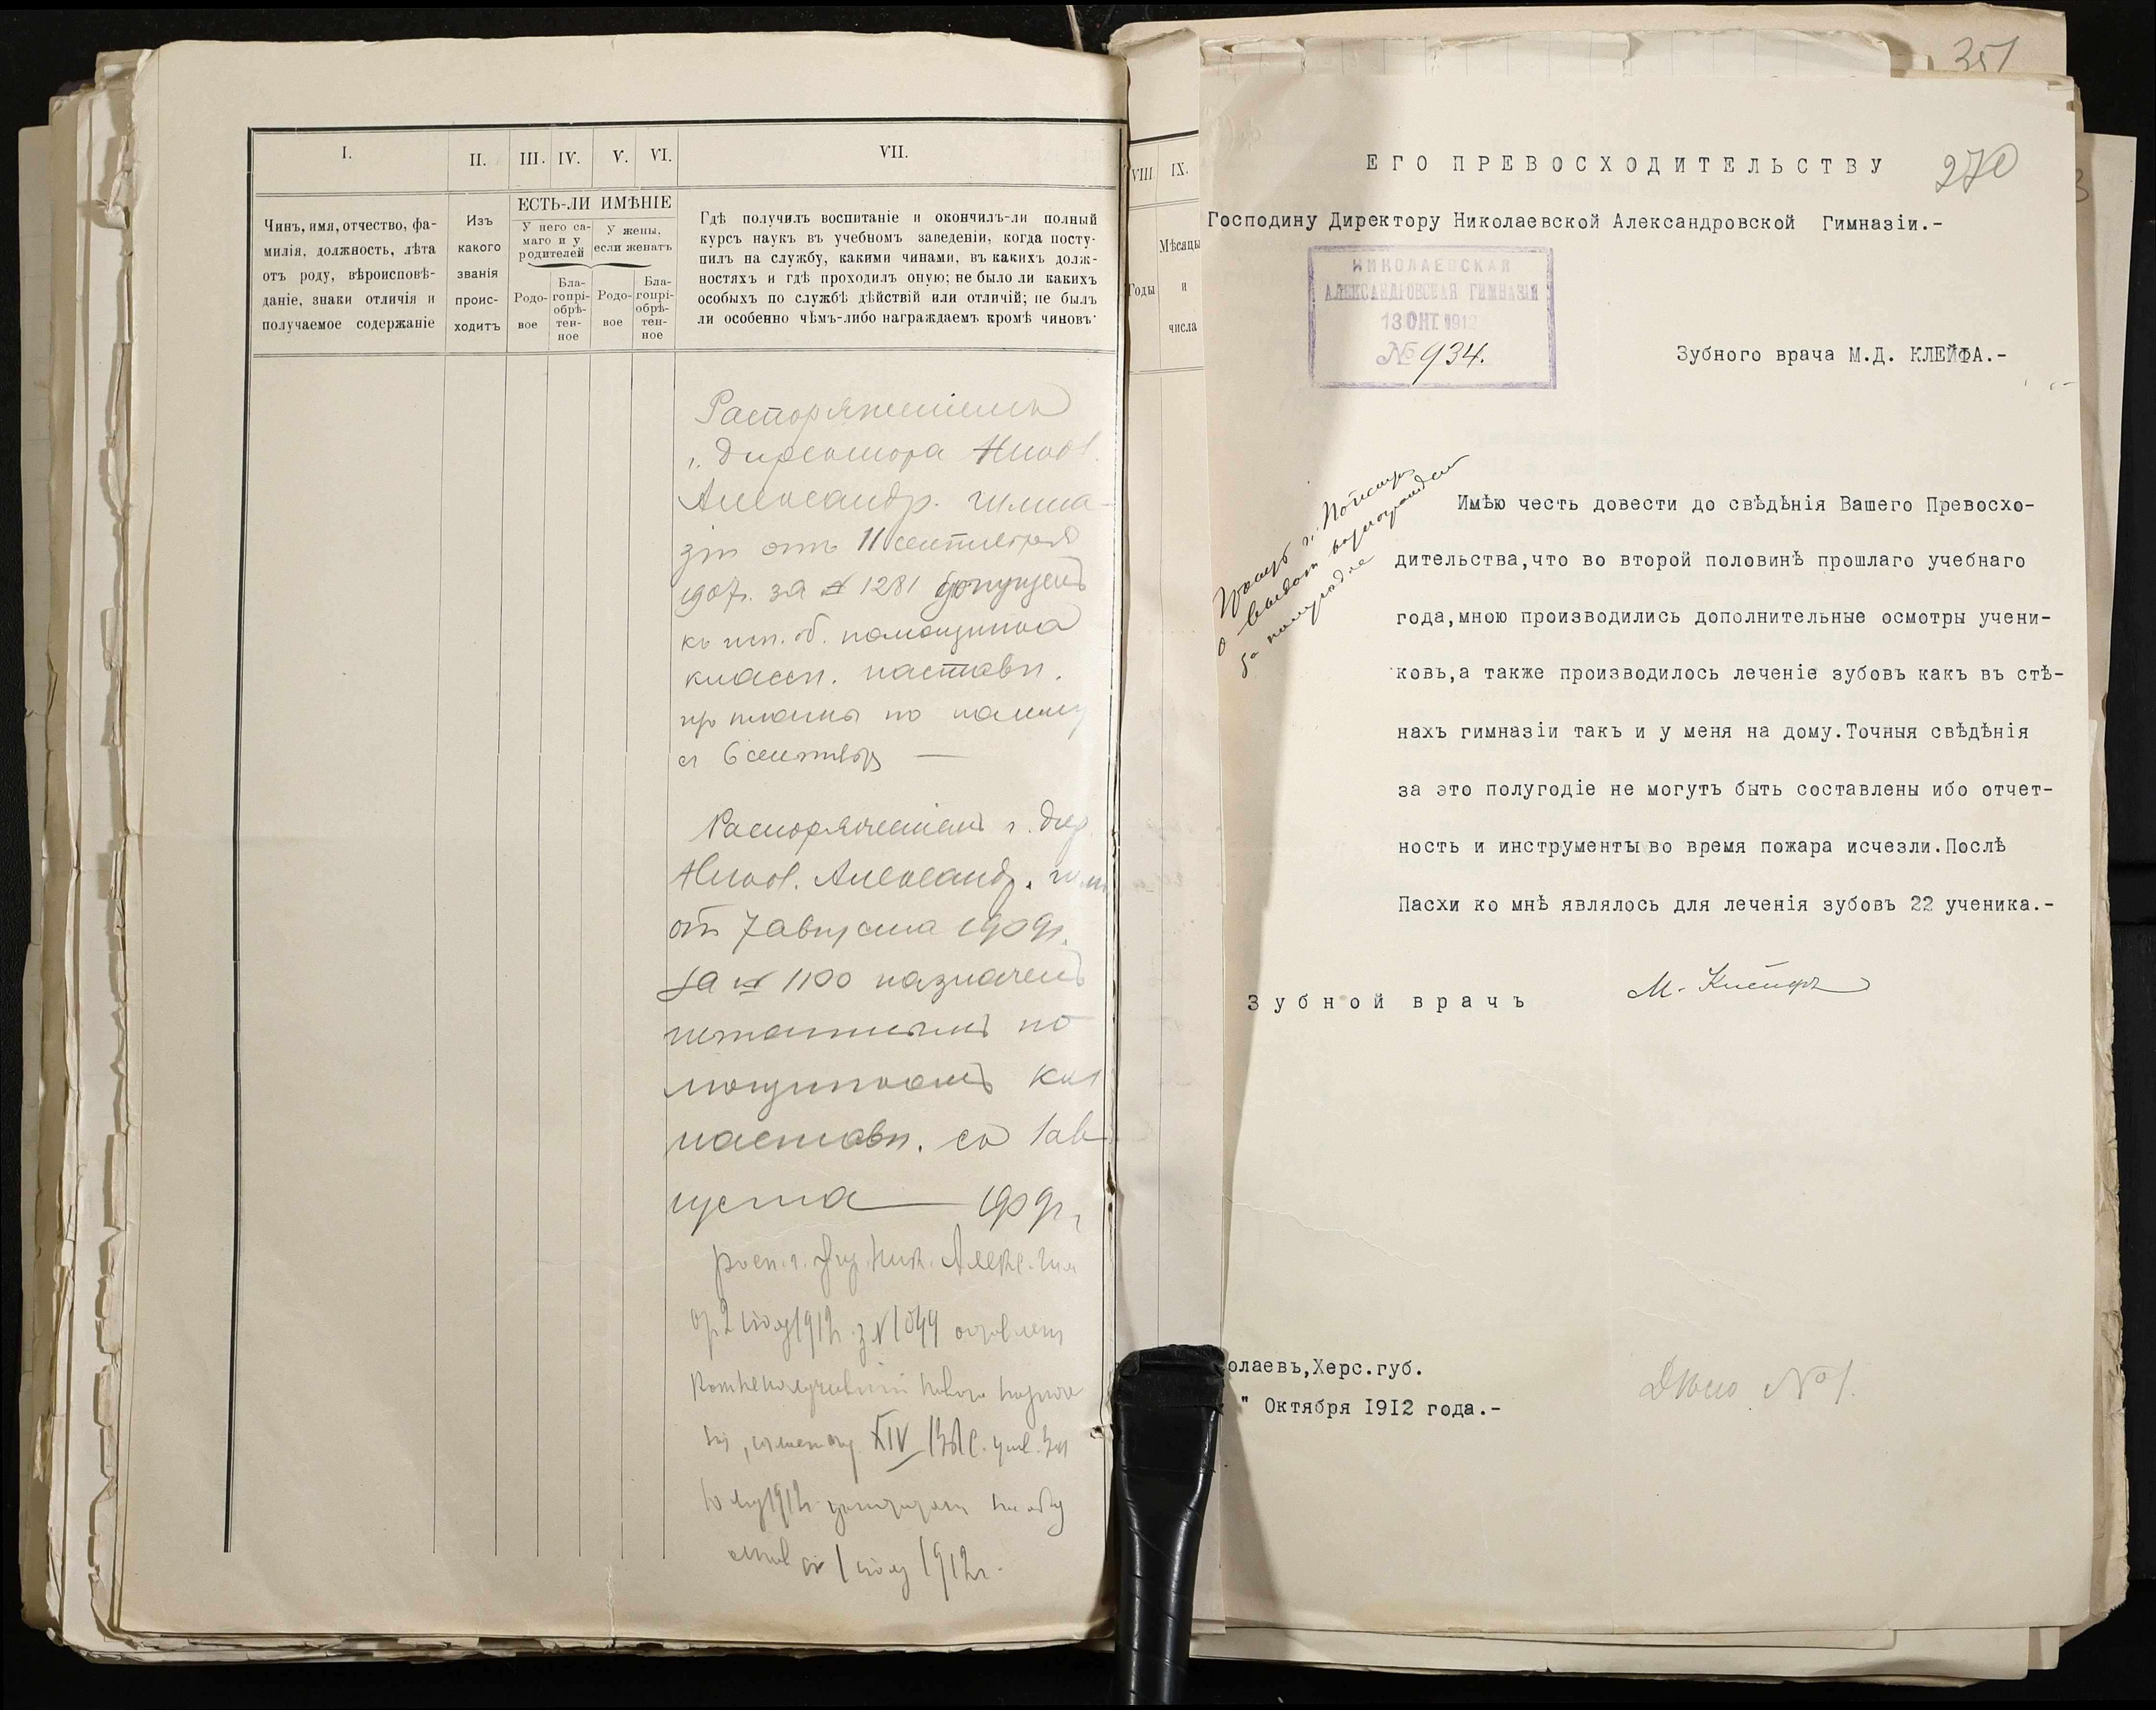 I.
II.
III.
IV.
V.
VI.
VII.
Чинъ, имя, отчество, фа-
милія, должность, лѣта
отъ роду, вѣроисповѣ-
даніе, знаки отличія и
получаемое содержаніе
Изъ
какого
званія
проис-
ходитъ
ЕСТЬ-ЛИ ИМѢНІЕ
У него са-
маго и у
родителей
У жены,
если женатъ
Родо-
вое
Бла-
гопрі-
обрѣ-
тен-
ное
Родо-
вое
Бла-
гопрі-
обрѣ-
тен-
ное
Гдѣ получилъ воспитаніе и окончилъ-ли полный
курсъ наукъ въ учебномъ заведеніи, когда посту-
пилъ на службу, какими чинами, въ какихъ долж-
ностяхъ и гдѣ проходилъ оную; не было ли какихъ
особыхъ по службѣ дѣйствій или отличій; не былъ
ли особенно чѣмъ-либо награждаемъ кромѣ чиновъ
Распоряженіемъ
г. директора Никол.
Александр. гимна-
зіи отъ 11 сентября
1907г. за № 1281 допущенъ
къ исп. об. помощника
классн. наставн.
по найму
съ 6 сентября —
Распоряженіемъ г. дир.
Никол. Александр. гим.
отъ 7 августа 1909г.
за № 1100 назначенъ
штатнымъ по
мощникомъ кл
наставн. съ 1 ав
густа — 1909г.
расп. г. дир. Ник. Алекс. гим
1912г. з. № 1044
XIV
1912г.
съ 1 іюля 1912г.
VIII
IX.
Годы
Мѣсяцы
и
числа
351
270
ЕГО ПРЕВОСХОДИТЕЛЬСТВУ
Господину Директору Николаевской Александровской Гимназіи.-
НИКОЛАЕВСКАЯ
АЛЕКСАНДРОВСКАЯ ГИМНАЗІЯ
13 ОКТ. 1912
№ 934.
Зубного врача М.Д. КЛЕЙФА.-
Прошу г.
о
за полугодіе
Имѣю честь довести до свѣдѣнія Вашего Превосхо-
дительства,что во второй половинѣ прошлаго учебнаго
года,мною производились дополнительные осмотры учени-
ковъ,а также производилось леченіе зубовъ какъ въ стѣ-
нахъ гимназіи такъ и у меня на дому.Точныя свѣдѣнія
за это полугодіе не могутъ быть составлены ибо отчет-
ность и инструменты во время пожара исчезли.Послѣ
Пасхи ко мнѣ являлось для леченія зубовъ 22 ученика.-
Зубной врачъ
М. Клейфъ
олаевъ,Херс.губ.
" Октября 1912 года.-
Дѣло № 1.